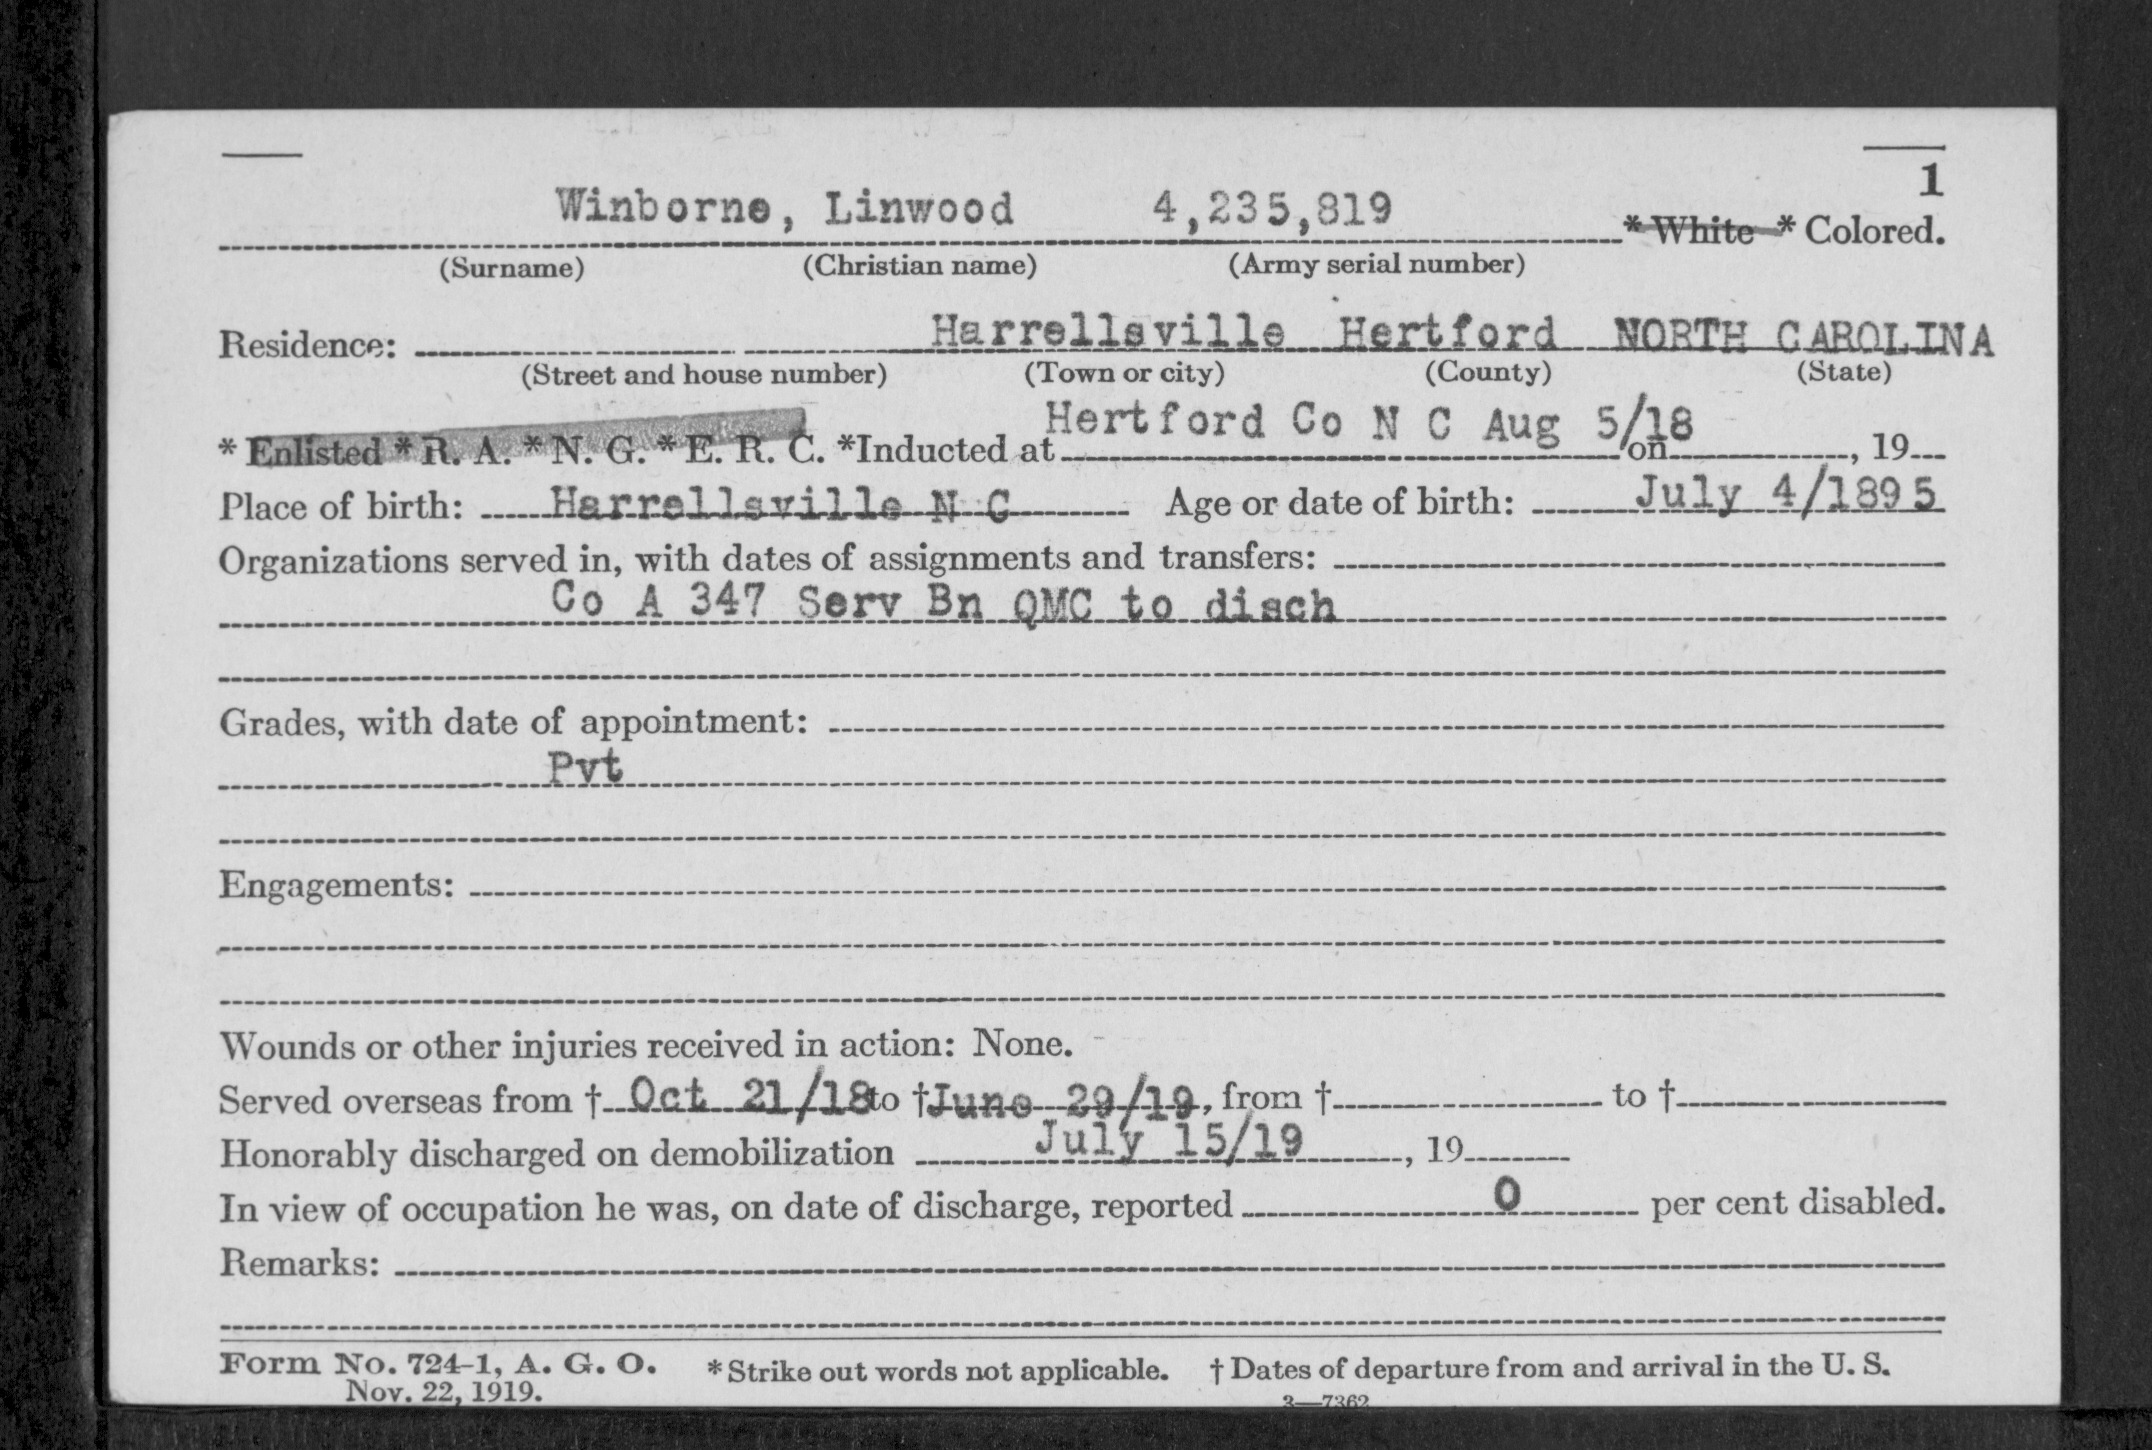 1
Winborne, Linwood 4,235,819 * White * Colored.
(Surname) (Christian name) (Army serial number)
Residence: Harrellsville Hertford NORTH CAROLINA
(Street and house number) (Town or city) (County) (State)
* Enlisted * R. A. * N. G. * E. R. C. *Inducted at Hertford Co N C Aug 5/18 on , 19
Place of birth: Harrellsville N C Age or date of birth: July 4/1895
Organizations served in, with dates of assignments and transfers:
Co A 347 Serv Bn QMC to disch
Grades, with date of appointment:
Pvt
Engagements:
Wounds or other injuries received in action: None.
Served overseas from † Oct 21/18 to † June 29/19, from † to †
Honorably discharged on demobilization July 15/19, 19
In view of occupation he was, on date of discharge, reported 0 per cent disabled.
Remarks:
Form No. 724-1, A. G. O. * Strike out words not applicable. † Dates of departure from and arrival in the U. S.
Nov. 22, 1919. 3—7362